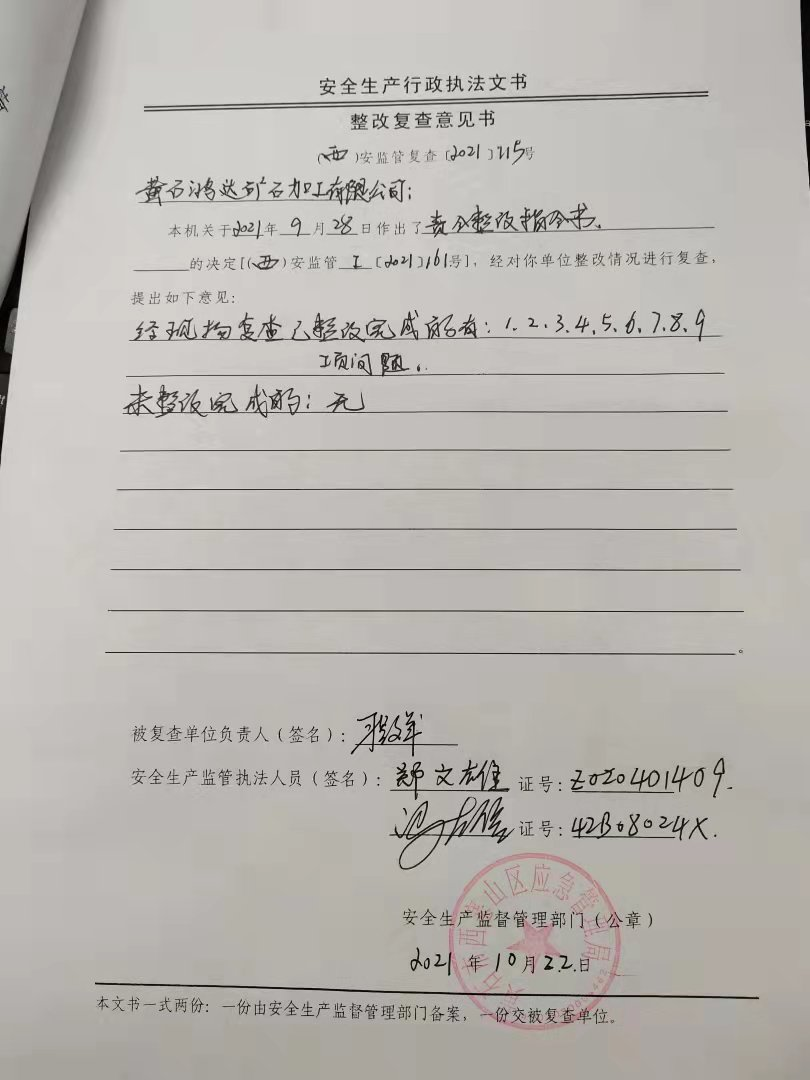 安全生产行政执法文书
整改复查意见书
(西)安监管复查〔2021〕215号
黄石鸿达矿石加工有限公司:
本机关于2021年9月28日作出了责令整改指令书。
的决定[(西)安监管I〔2021〕161号],经对你单位整改情况进行复查,
提出如下意见:
经现场复查已整改完成的有:1.2.3.4.5.6.7.8.9
项问题。
未整改完成的:无
。
被复查单位负责人(签名):
安全生产监管执法人员(签名):郑文雄 证号:Z020401409.
证号:42B08024X.
西塞山区应急管理局
安全生产监督管理部门(公章)
2021年10月22日
本文书一式两份:一份由安全生产监督管理部门备案,一份交被复查单位。